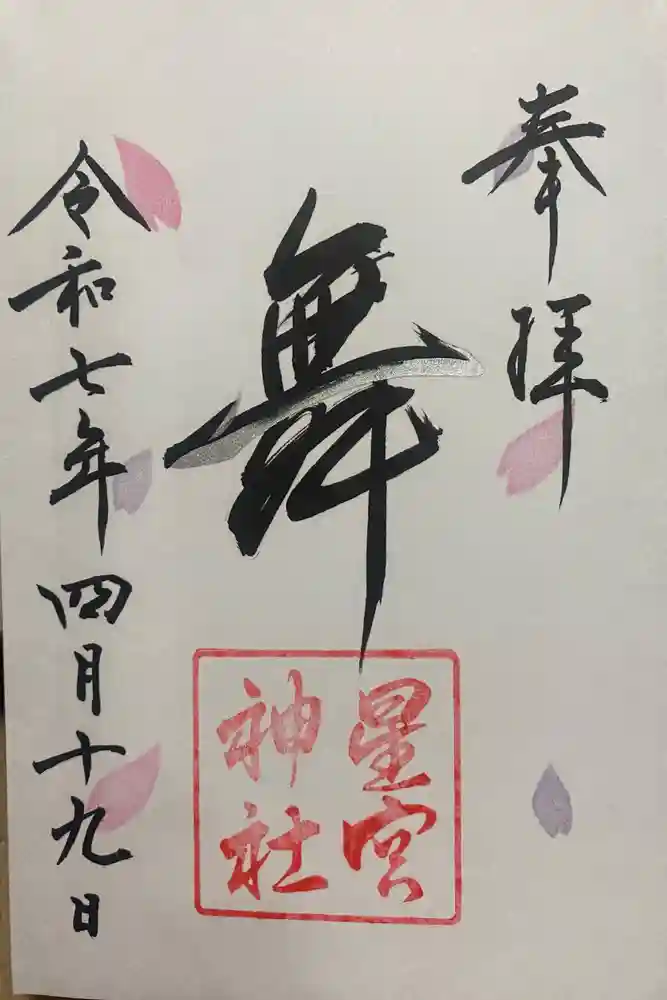 奉拝
舞
星宮
神社
令和七年四月十九日